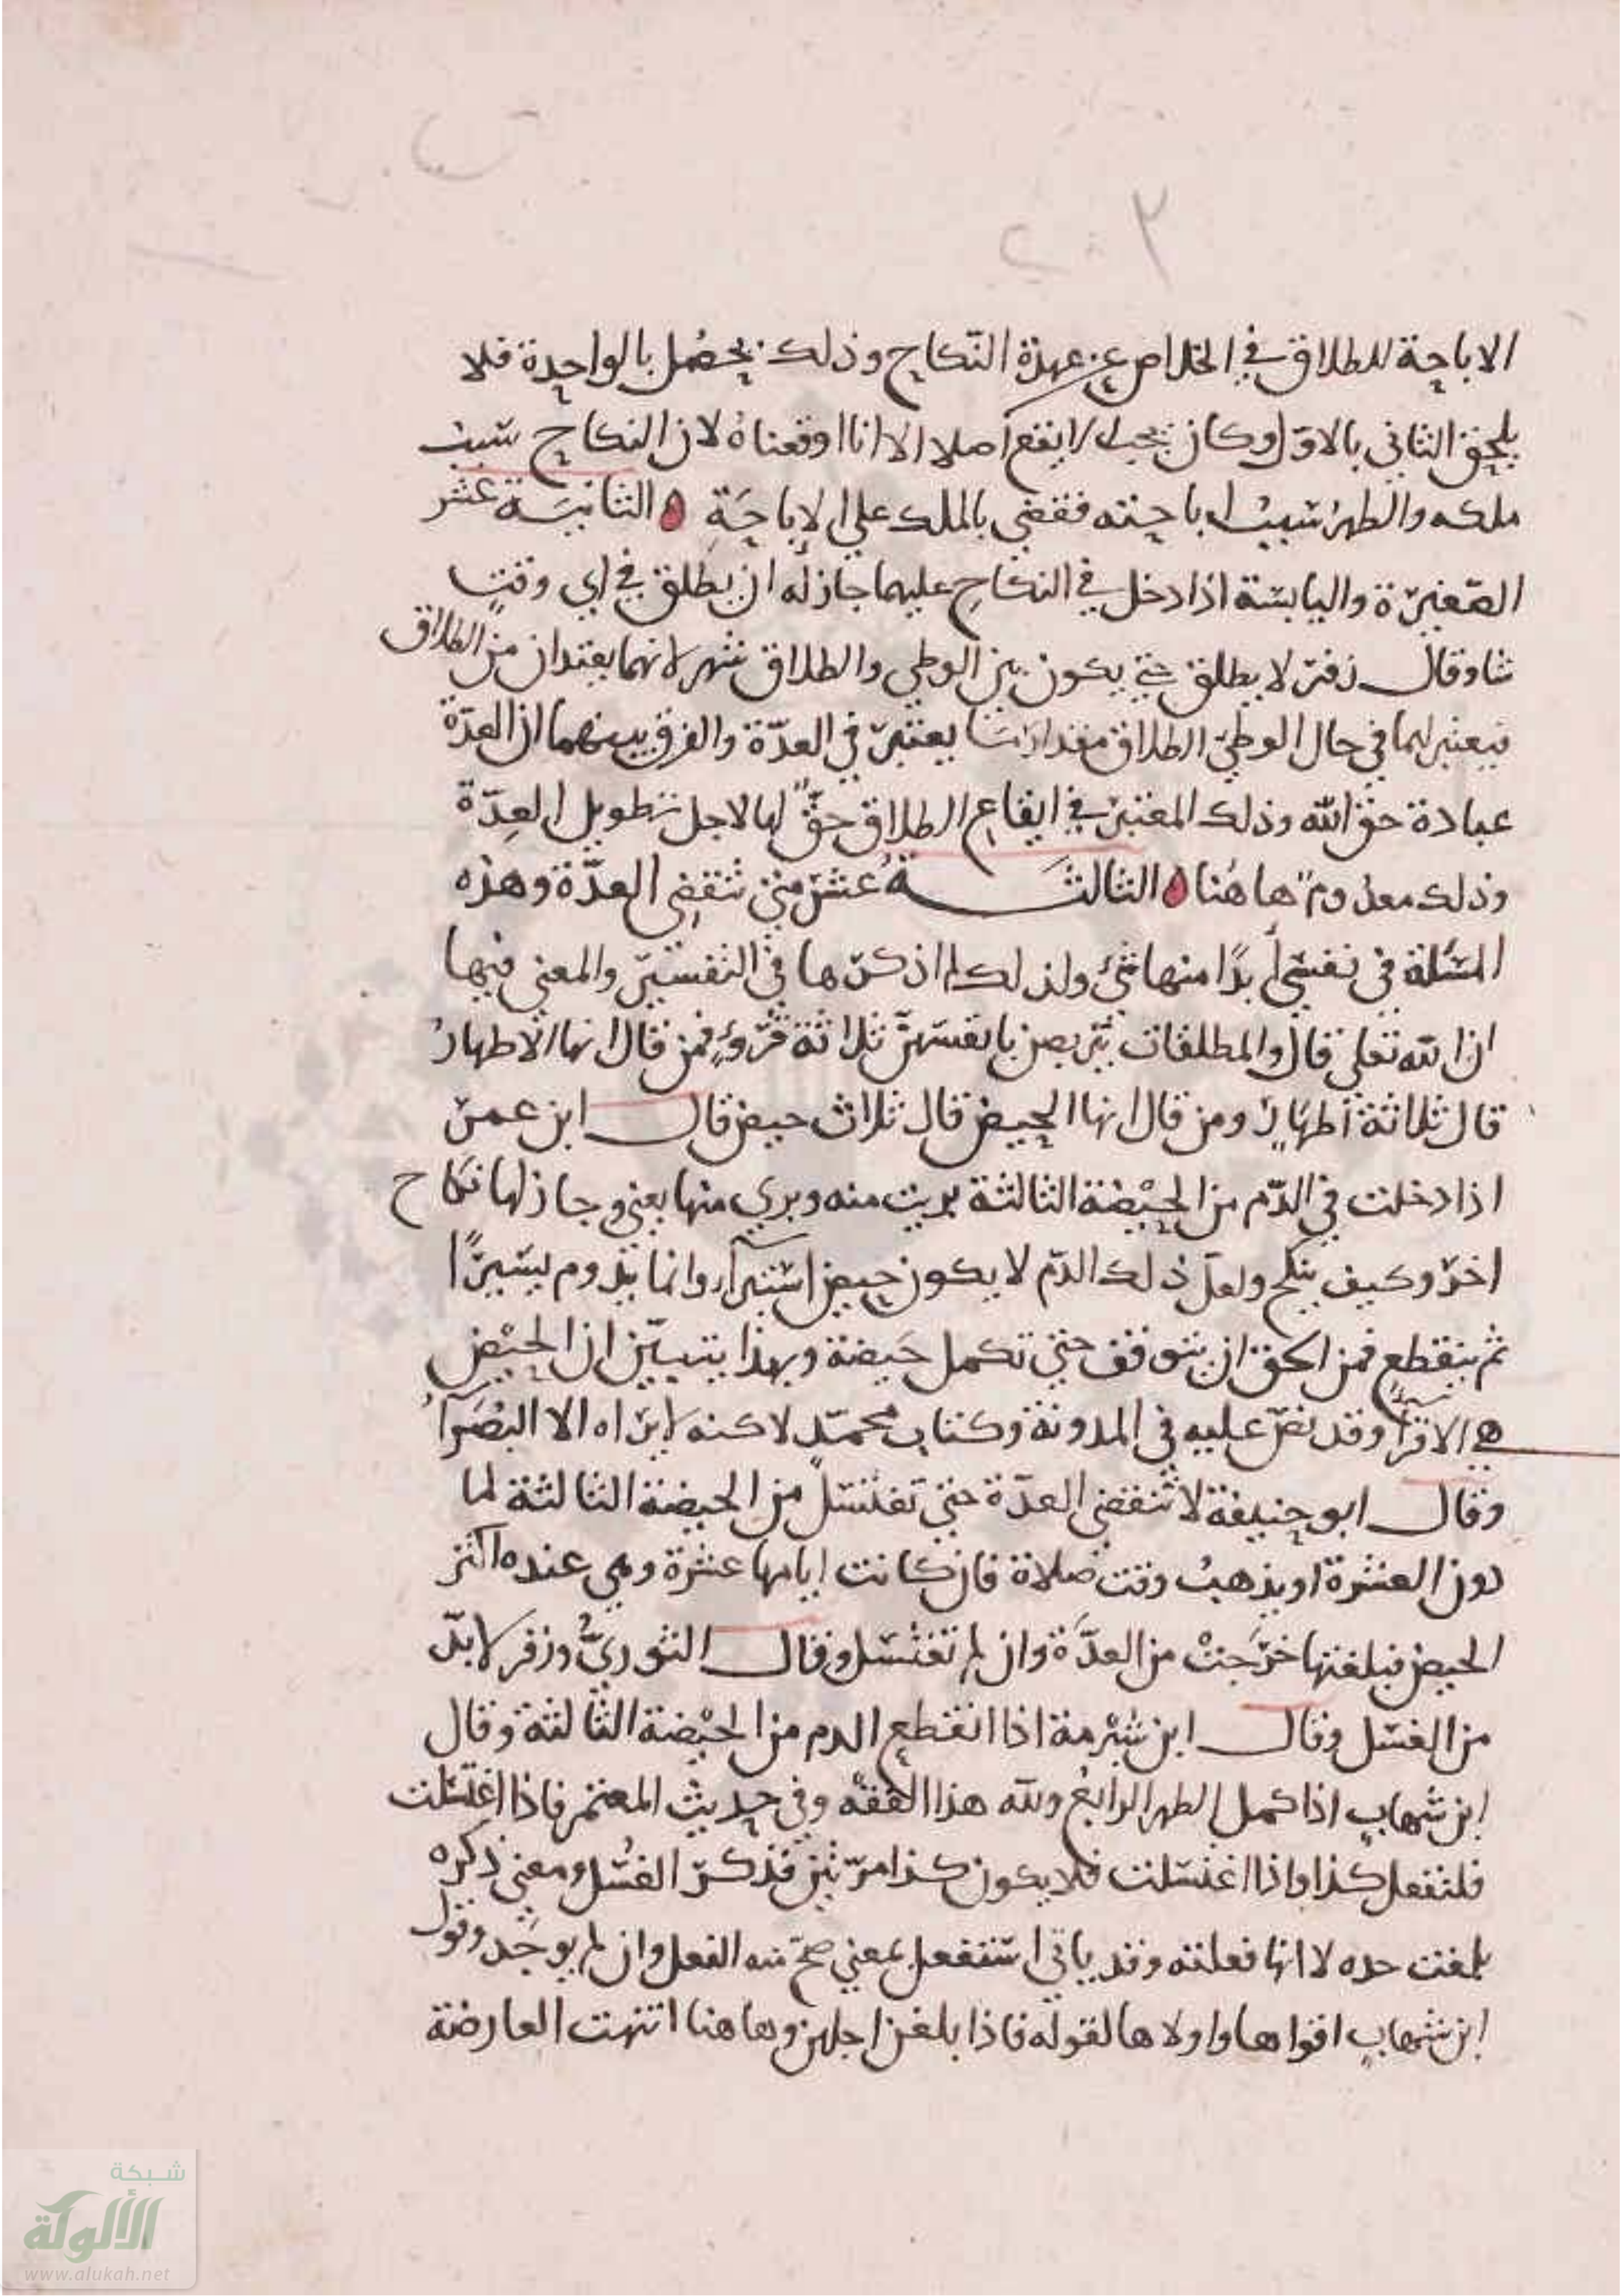 ٢
الاباحة للطلاق في الخلاص عن عهدة النّكاح وذلك يحصُل بالواحدة فلا
يلحق الثاني بالاوّل وكان يجب الا يقع اصلا الا انا اوقعناهُ لان النكاح سَببُ
ملكه والطهرُ سَببُ اباحته فقضي بالملك على الاباحَة ٥ الثانيَة عشر
الصّغيرة واليابسَة اذا دخل في النكاحِ عليهما جاز له ان يطلق في اي وقتٍ
شا وقال زفر لا يطلق حتى يكون بين الوطي والطلاق شهر لانهما يعتدان من الطلاق
فيعتبر لهما في حال الوطي الطلاق مقدار ما يعتبر في العدّة والفرق بينهما ان العدّة
عبادة حق الله وذلك المعتبر في ايقاع الطلاق حقٌّ لها لاجل تطويل العِدّة
وذلك معدوم ها هُنا ٥ الثالثَة عشر متى تنقضِى العدّة وهذه
المسَلة في نفسي أبدًا منها شيء ولذلك لم اذكرها في التفسير والمعنى فيها
ان الله تعلى قال والمطلقات يتربصن بانفسهنّ ثلاثة قروءٍ فمن قال انها الاطهارُ
قال ثلاثة أطهار ومن قال انها الحيض قال ثلاث حيض قال ابن عمر
اذا دخلت في الدّم من الحيْضة الثالثة بريت منه وبري منها يعني وجاز لها نكاح
اخر وكيف ينكح ولعلّ ذلك الدّم لا يكون حيض استبرآء وانما يدوم يسَيرًا
ثم ينقطع فمن الحق ان يتوقف حتى تكمل حَيضة وبهذا يتبيّن ان الحيْض
هي الاقرأ وقد نصّ عليه في المدونة وكتاب محمدٍ لاكنه لا يراه الا البُصَرآءُ
وقال ابو حنيفة لا تنقضي العدّة حتى تغتسل من الحيضة الثالثة لما
دون العشرة او يذهبُ وقت صلاة فان كانت ايامها عشرة وهي عنده اكثر
الحيض فبلغتها خرَجتْ من العدَّة وان لم تغتسل وقال الثوريُّ وزفر لا بدّ
من الغسل وقال ابن شبْرمة اذا انقطع الدم من الحيْضة الثالثة وقال
ابن شهابٍ اذا كمل الطهر الرابعُ ولله هذا الفقهُ وفي حديث المعتمر فاذا اغتسلت
فلتفعل كذا واذا اغتسلت فلا يكون كذا مرّتين فذكرَ الغسُل ومعنى ذكره
بلغت حده لا انها فعلته وقد ياتي استفعل بمعنى صحّ منه الفعل وان لم يوجَد وقول
ابن شهابٍ اقواها واولاها لقوله فاذا بلغن اجلهن وها هنا انتهت العارضة
شبكة
الألوكة
www.alukah.net